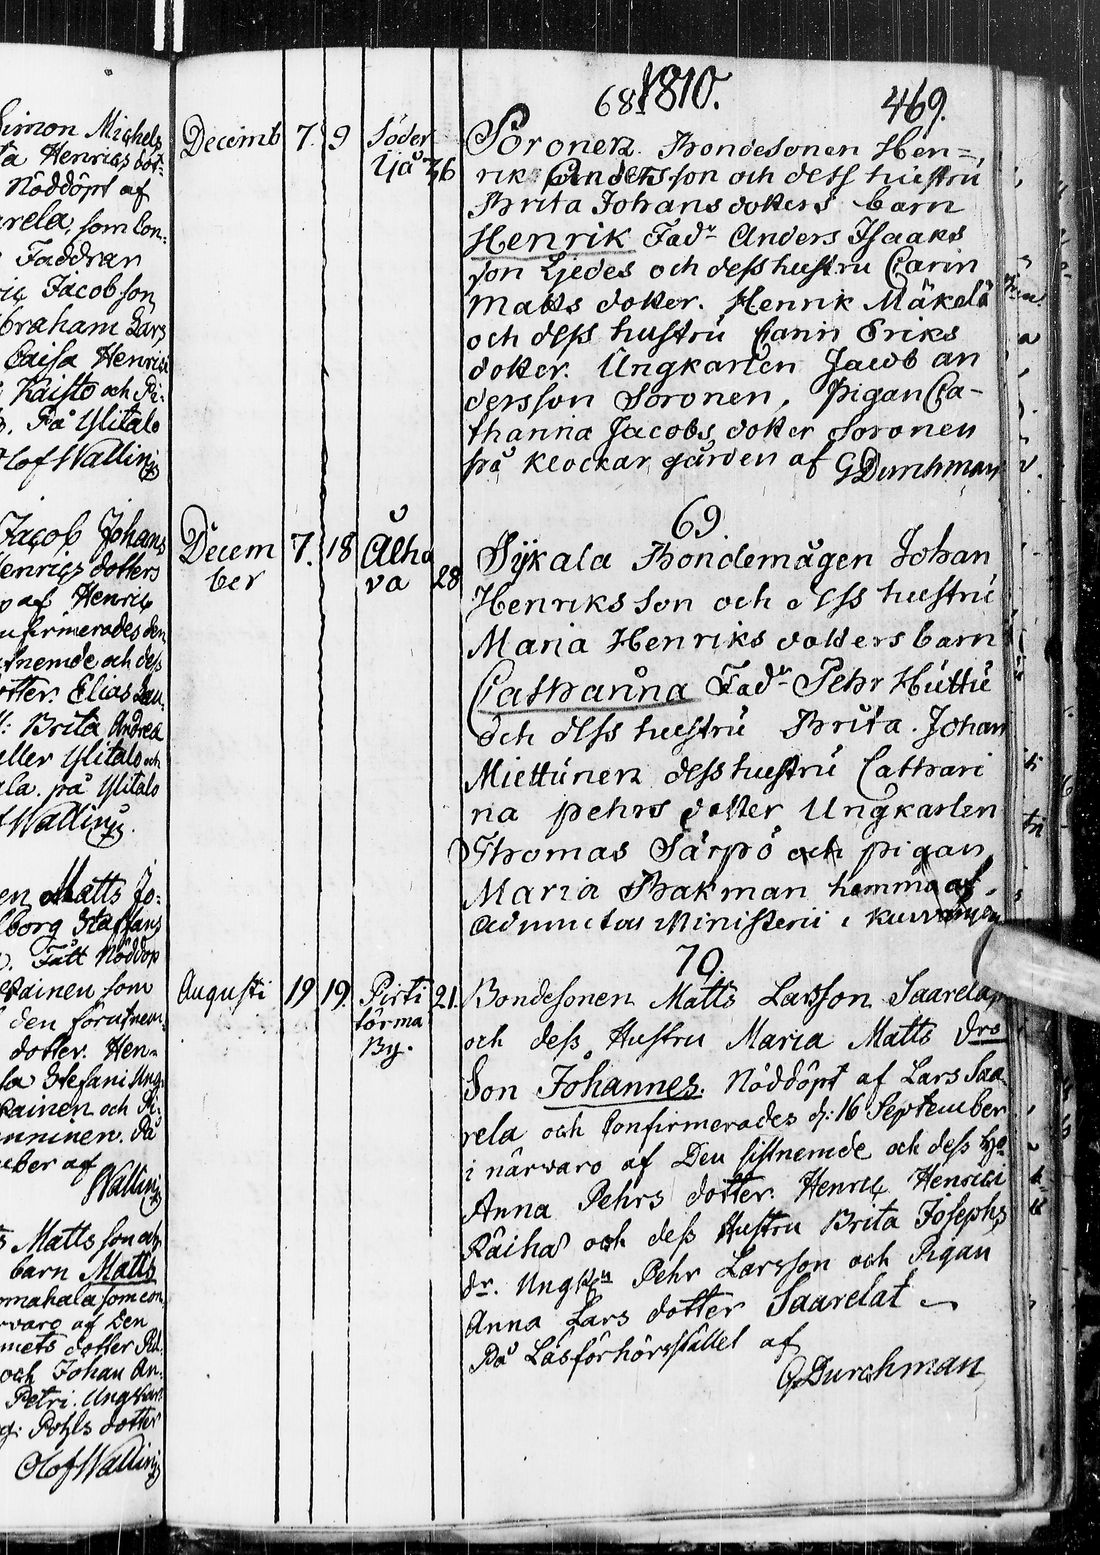 Simon Michels
ta Henrics dot:
Nöddöpt af
arela, som Con:
Faddrar
Jacobson
braham Lars
Caisa Henrics
Kaisto och Pi:
På Ylitalo
Olof Walling
Jacob Johans
Henrics dotters
af Henric
nfirmerades den
tnemde och dess
otter. Elias Lau.
Brita Andrea
eller Ylitalo och
ala. på Ylitalo
Walling.
en Matts Jo:
lborg Staffans
Fått Nöddop
kainen som
den förutnem:
dotter. Hen-
Stefani Ung:
kainen och Pi:
nninen. På
mber af
Walling
Matts son och
barn Matts
mahala som con
rvaro af Den
mets dotter
och Johan An:
Petri. Ungkarl
Pohls dotter
Olof Walling
1810.
68. 469.
Decemb 7. 9 Söder
Yjå 36
Soronen. Bondesonen Hen=
rik Anders son och dess hustru
Brita Johans dotters barn
Henrik Fadr Anders Isaaks
son Ljedes och dess hustru Carin
Matts dotter. Henrik Mäkelä
och dess hustru Carin Eriks
dotter. Ungkarlen Jacob an
dersson Soronen, pigan Ca-
tharina Jacobs dotter Soronen
på Klockar gården af G Durchman
69.
Decem
ber 7. 18 Alha
va 28
Sykala Bondemågen Johan
Henriks son och dess hustru
Maria Henriks dotters barn
Catharina Fadr Pehr Huttu
och dess hustru Brita. Johan
Miettünen dess hustru Cathari
na pehrs dotter Ungkarlen
Thomas Särpö och pigan
Maria Bakman hemma af
Adjunctus Ministerii i
70.
Augusti 19 19. Pirti
törma
By. 21.
Bondesonen Matts Larsson Saarela
och dess Hustru Maria Matts Drs
Son Johannes. Nöddöpt af Lars Saa
rela och Confirmerades d: 16 September
i närvaro af Den sistnemde och dess H:
Anna Pehrs dotter. Henric Henrici
Räihä och dess Hustru Brita Josephs
dr. Ungkn Pehr Larsson och Pigan
Anna Lars dotter Saarelat
På Läsförhörsstället af
G Durchman